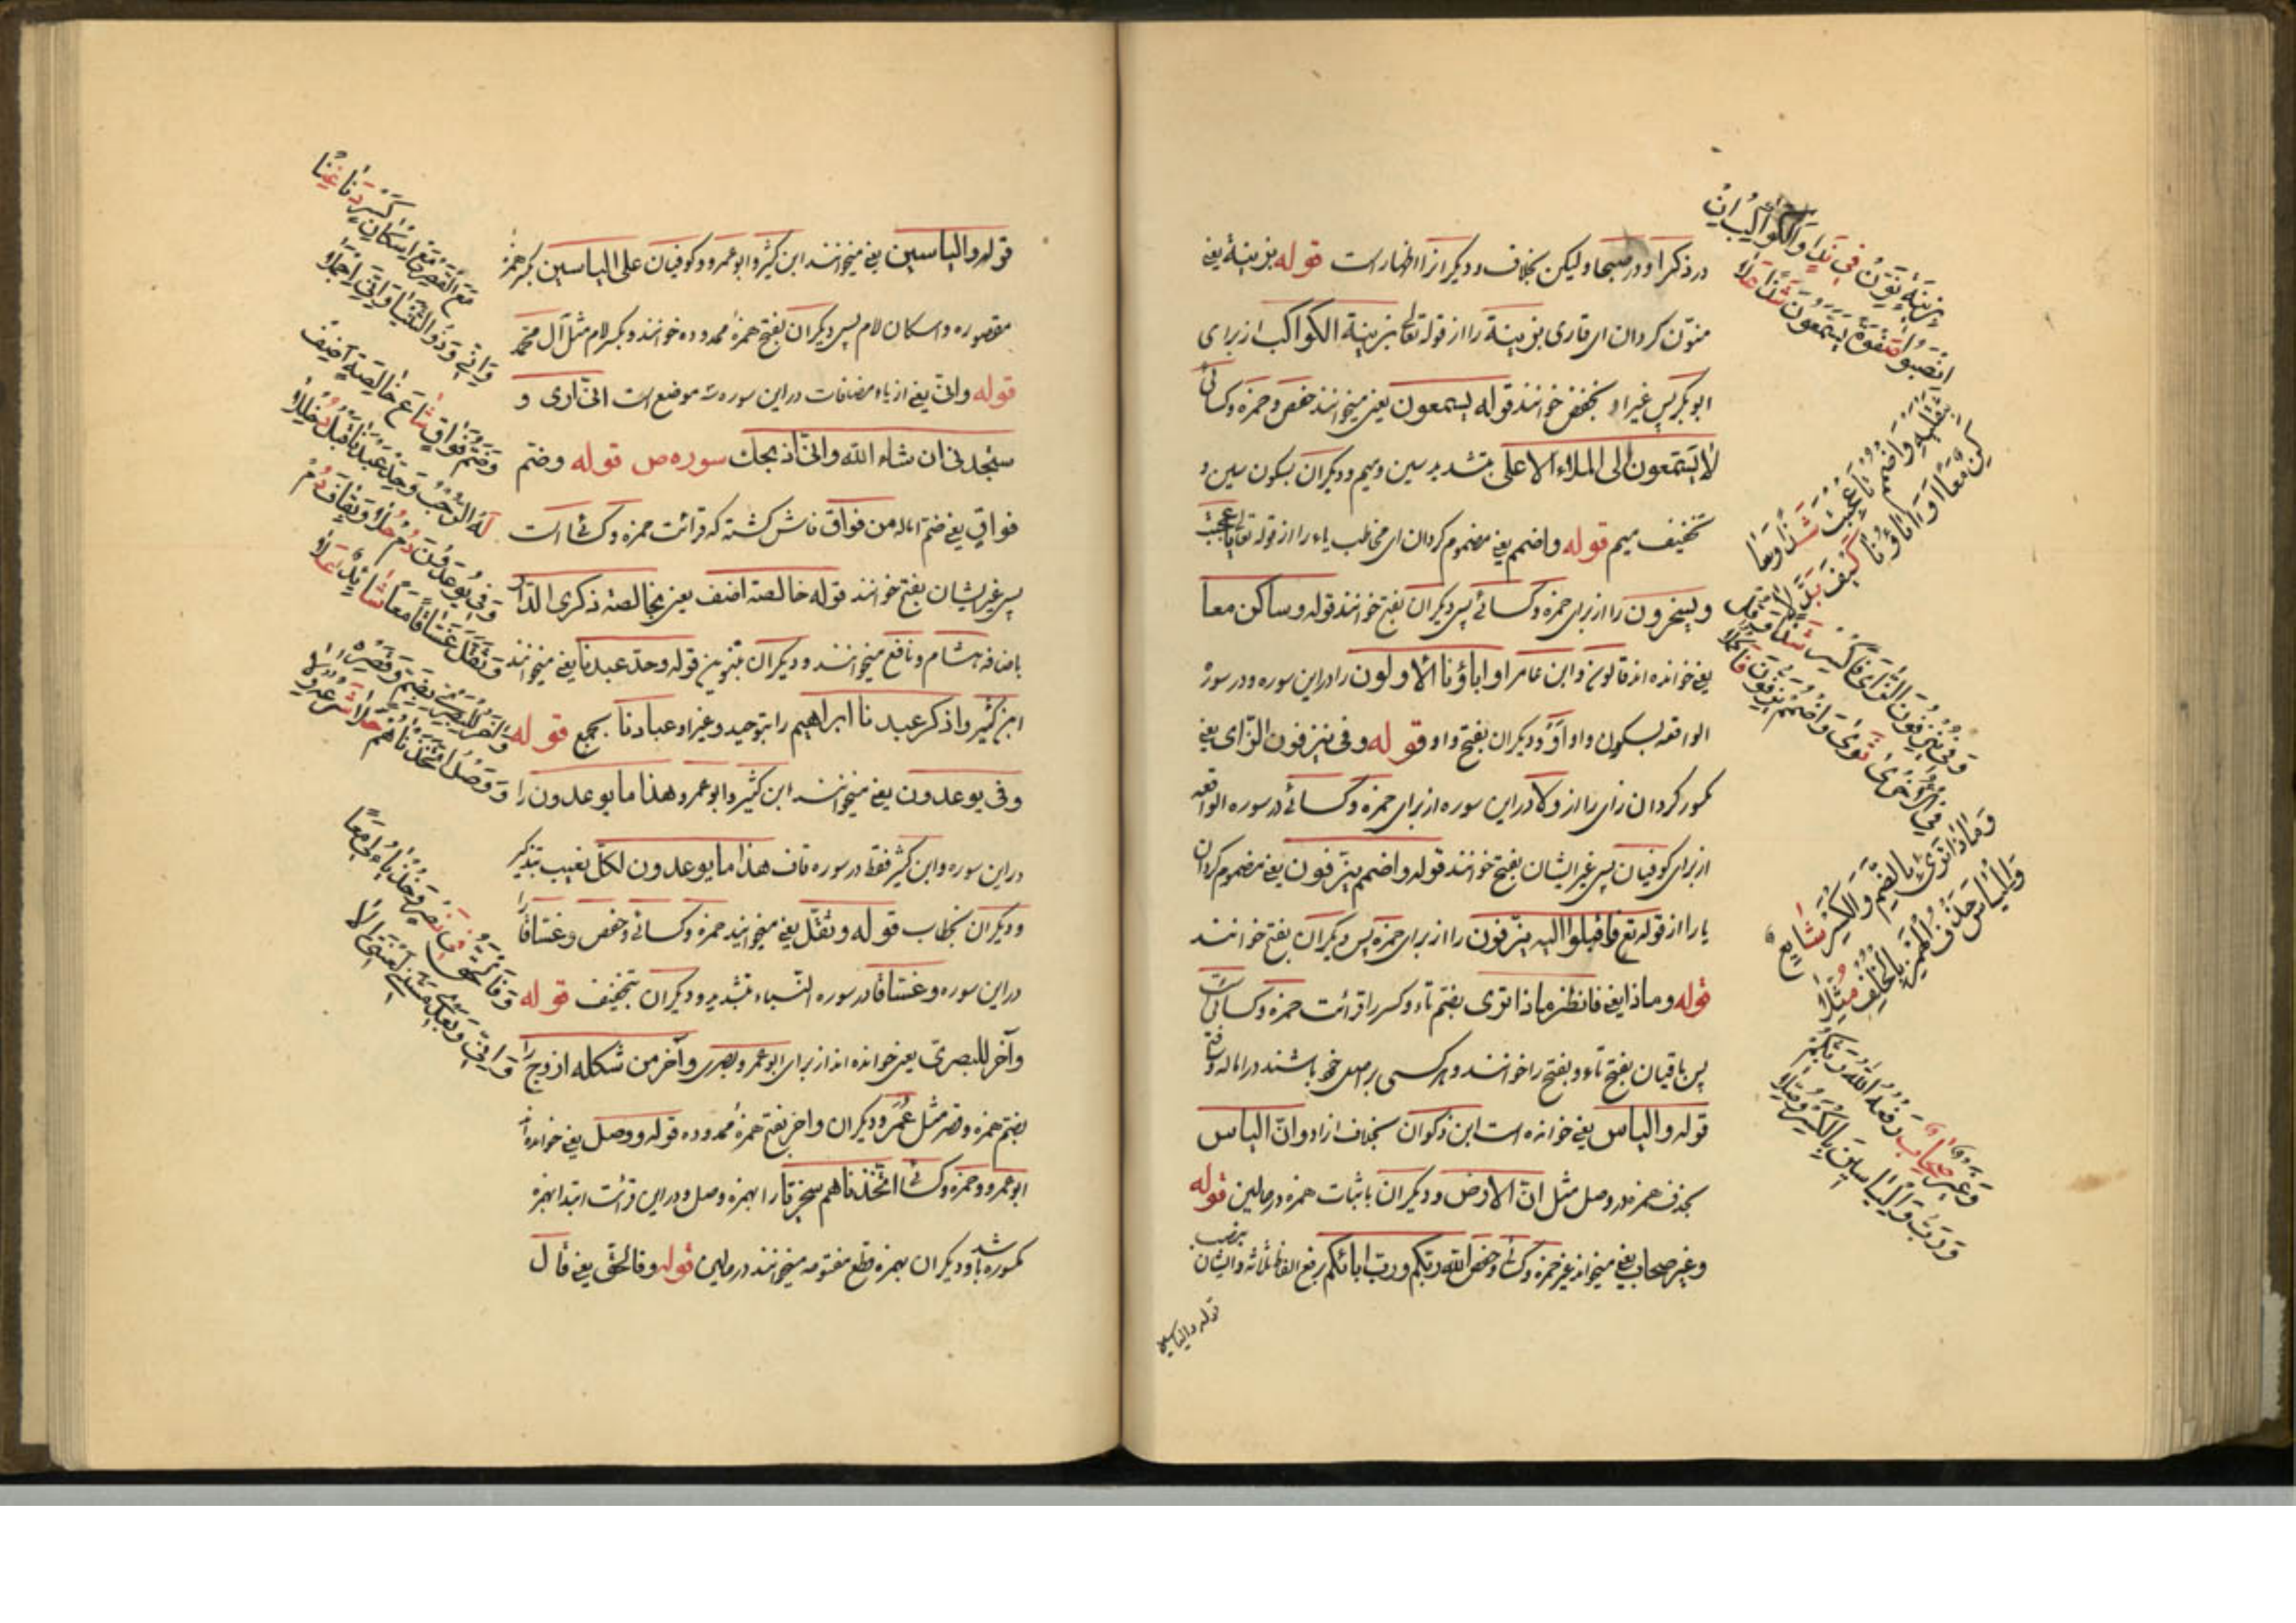 در ذکرا و در صبحا ولیکن بخلاف و دیکرانرا اظهار است قوله بزینة یعنی
منوّن کردان ای قاری بزینة را از قوله تعالی بزینة الکواکب از برای
ابوبکر پس غیر او بخفض خوانند قوله یسمعون یعنی میخوانند حفص و حمزه و کسائی
لا یسّمعون الی الملاء الاعلی بتشدید سین و میم و دیکران بسکون سین و
تخفیف میم قوله واضمم یعنی مضموم کردان ای مخاطب یاء را از قوله تعالی عجبت
ویسخرون را از برای حمزه و کسائی پس دیکران بفتح خوانند قوله وساکن معا
یعنی خوانده اند قالون و ابن عامر او اباؤنا الاولون را در این سوره و در سورۀ
الواقعه بسکون واو أوْ و دیکران بفتح واو قوله وفی ینزفون الزای یعنی
کسور کردان زای را از ولا در این سوره از برای حمزه و کسائی در سوره الواقعه
از برای کوفیان پس غیر ایشان بفتح خوانند قوله واضمم ینزفون یعنی مضموم کردان
یا را از قوله تع فاقبلوا الیه یزفون را از برای حمزه پس دیکران بفتح خوانند
قوله وماذا یعنی فانظر ماذا تری بضم تاء و کسر را قرائت حمزه و کسائی است
پس باقیان بفتح تاء و بفتح را خوانند و هر کسی بر اصل خود باشند در اماله و فتح
قوله والیاس یعنی خوانده است ابن ذکوان بخلاف از او وانّ الیاس
بحذف همزه در وصل مثل انّ الارض و دیکران باثبات همزه در حالین قوله
وغیر صحاب یعنی میخوانند غیر حمزه و کسائی و حفص الله ربکم ورب ابائکم برفع الفاظ ثلاثه و ایشان بنصب
قوله والیاسین
بزینة نوّن فی ند والکواکب ان
انصبوا صفوة یسمعون شذا علا
بثقلیه واضمم تا عجبت شذا وسا
کن معا او اباؤنا کیف بلّلا
وفی ینزفون الزای فاکسر شذا وقل
فی الاخری ثوی واضمم یزفون فاکملا
وماذا تری بالضم والکسر شایع
والیاس حذف الهمز بالخلف مثلا
وغیر صحاب رفعه الله ربکم
ورب والیاسین بالکسر وصلا
قوله والیاسین یعنی میخوانند ابن کثیر و ابوعمرو و کوفیان علی الیاسین بکسر همزۀ
مقصوره و اسکان لام پس دیکران بفتح همزۀ ممدوده خوانند و بکسر لام مثل آل محمّد
قوله وانی یعنی از یاء مضافات در این سوره سه موضع است انّی اری و
ستجدنی ان شاء الله وانّی اذبحک سوره ص قوله وضم
فواق یعنی ضم اماله من فواق فاش کشته که قرائت حمزه و کسائی است
پس غیر ایشان بفتح خوانند قوله خالصة اضف یعنی بخالصة ذکری الدار را
باضافه هشام و نافع میخوانند و دیکران بتنوین قوله وحد عبدنا یعنی میخوانند
ابن کثیر واذکر عبدنا ابراهیم را بتوحید و غیر او عبادنا بجمع قوله
وفی یوعدون یعنی میخوانند ابن کثیر و ابوعمرو هذا ما یوعدون را
در این سوره و ابن کثیر فقط در سوره قاف هذا ما یوعدون لکلّ بغیب بتذکیر
و دیکران بخطاب قوله وثقّل یعنی میخوانند حمزه و کسائی و حفص وغسّاقاً را
در این سوره وغسّاقا در سوره النباء بتشدید و دیکران بتخفیف قوله
وآخر للبصری یعنی خوانده اند از برای ابوعمرو بصری وآخر من شکله ازوج را
بضم همزه و قصر مثل عُمَر و دیکران واخر بفتح همزۀ ممدوده قوله ووصل یعنی خوانده
ابوعمرو و حمزه و کسائی اتخذناهم سخریّا را بهمزه وصل و در این قرائت ابتدا بهمزه
کسوره باشد و دیکران بهمزه قطع مفتوحه میخوانند در حالین قوله وفالحق یعنی قال
مع القصر مع اسکان کسر دنا غنا
وانی وذو الثنیا وانی اجملا
وضم فواق شاع خالصة اضف
له الرحب وحد عبدنا قبل دخللا
وفی یوعدون دم حلا وبقاف دم
وثقل غساقا معا شائد علا
واخر للبصری بضم وقصره
ووصل اتخذناهم حلا شرعه ولا
وفالحق فی نصر وخذ یاء لی معا
وانی وبعدی مسنی لعنتی الی